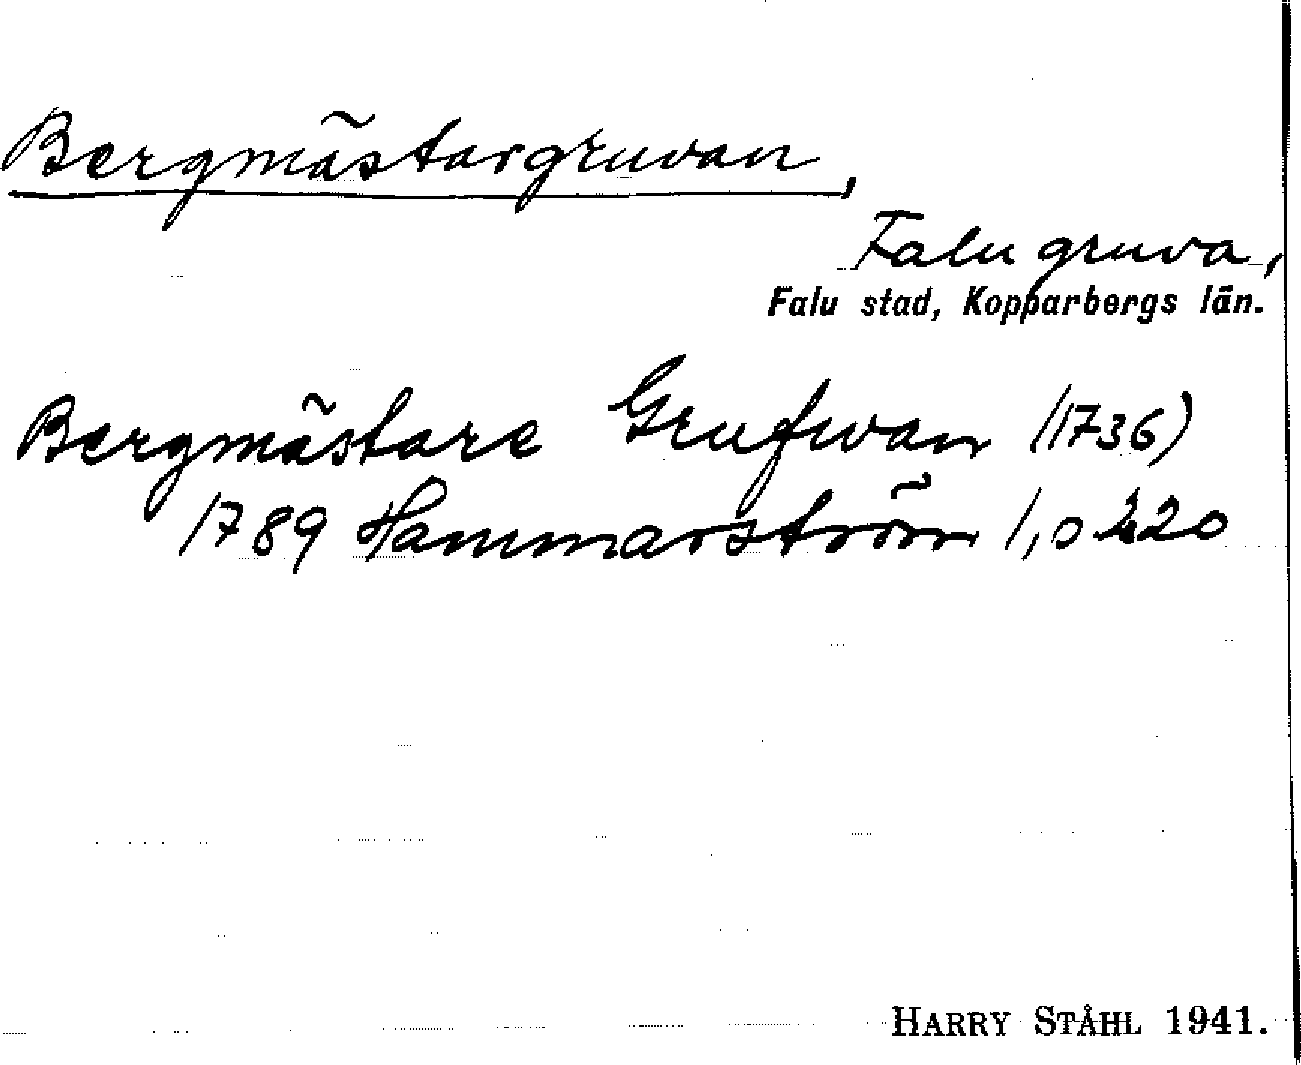 Bergmästargruvan,
Falu gruva,
Falu stad, Kopparbergs län.
Bergmästare Grufwan (1736)
1789 Hammarström 1, 220
HARRY STÅHL 1941.